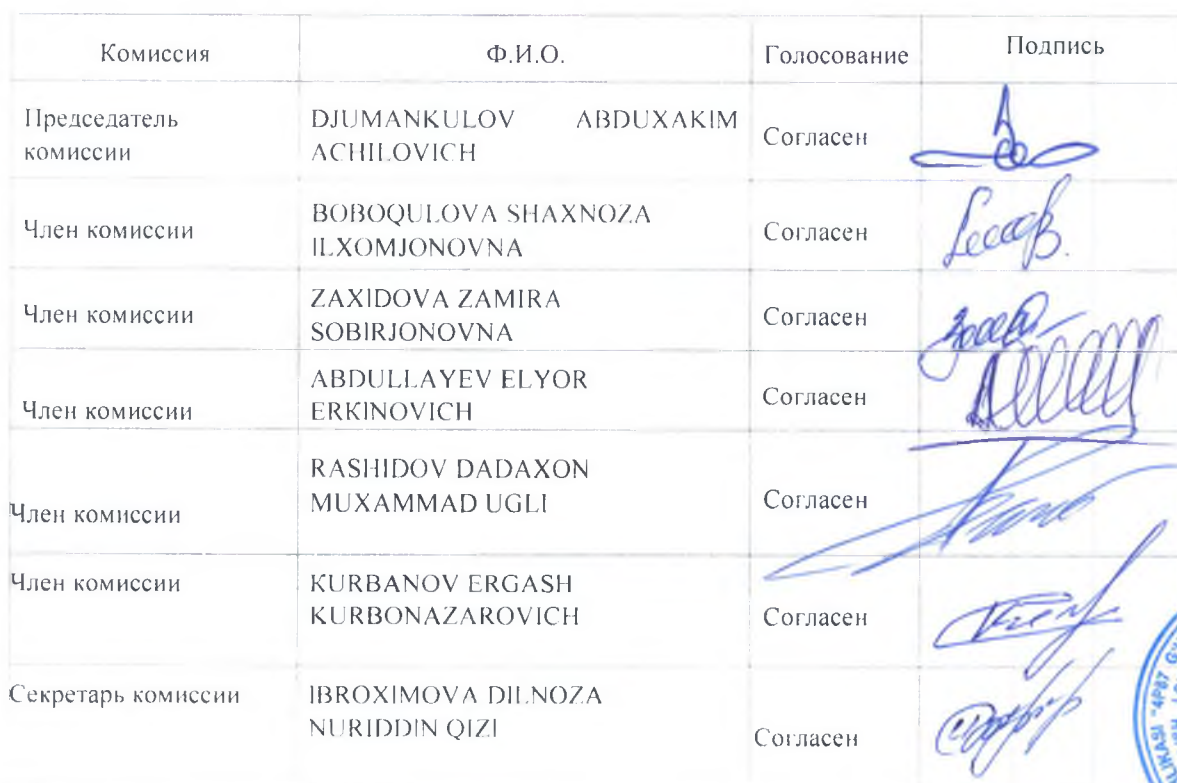 Комиссия Ф.И.О. Голосование Подпись
Председатель
комиссии
DJUMANKULOV ABDUXAKIM
ACHILOVICH
Согласен
Член комиссии
BOBOQULOVA SHAXNOZA
ILXOMJONOVNA
Согласен
Член комиссии
ZAXIDOVA ZAMIRA
SOBIRJONOVNA
Согласен
Член комиссии
ABDULLAYEV ELYOR
ERKINOVICH
Согласен
Член комиссии
RASHIDOV DADAXON
MUXAMMAD UGLI
Согласен
Член комиссии
KURBANOV ERGASH
KURBONAZAROVICH
Согласен
Секретарь комиссии
IBROXIMOVA DILNOZA
NURIDDIN QIZI
Согласен